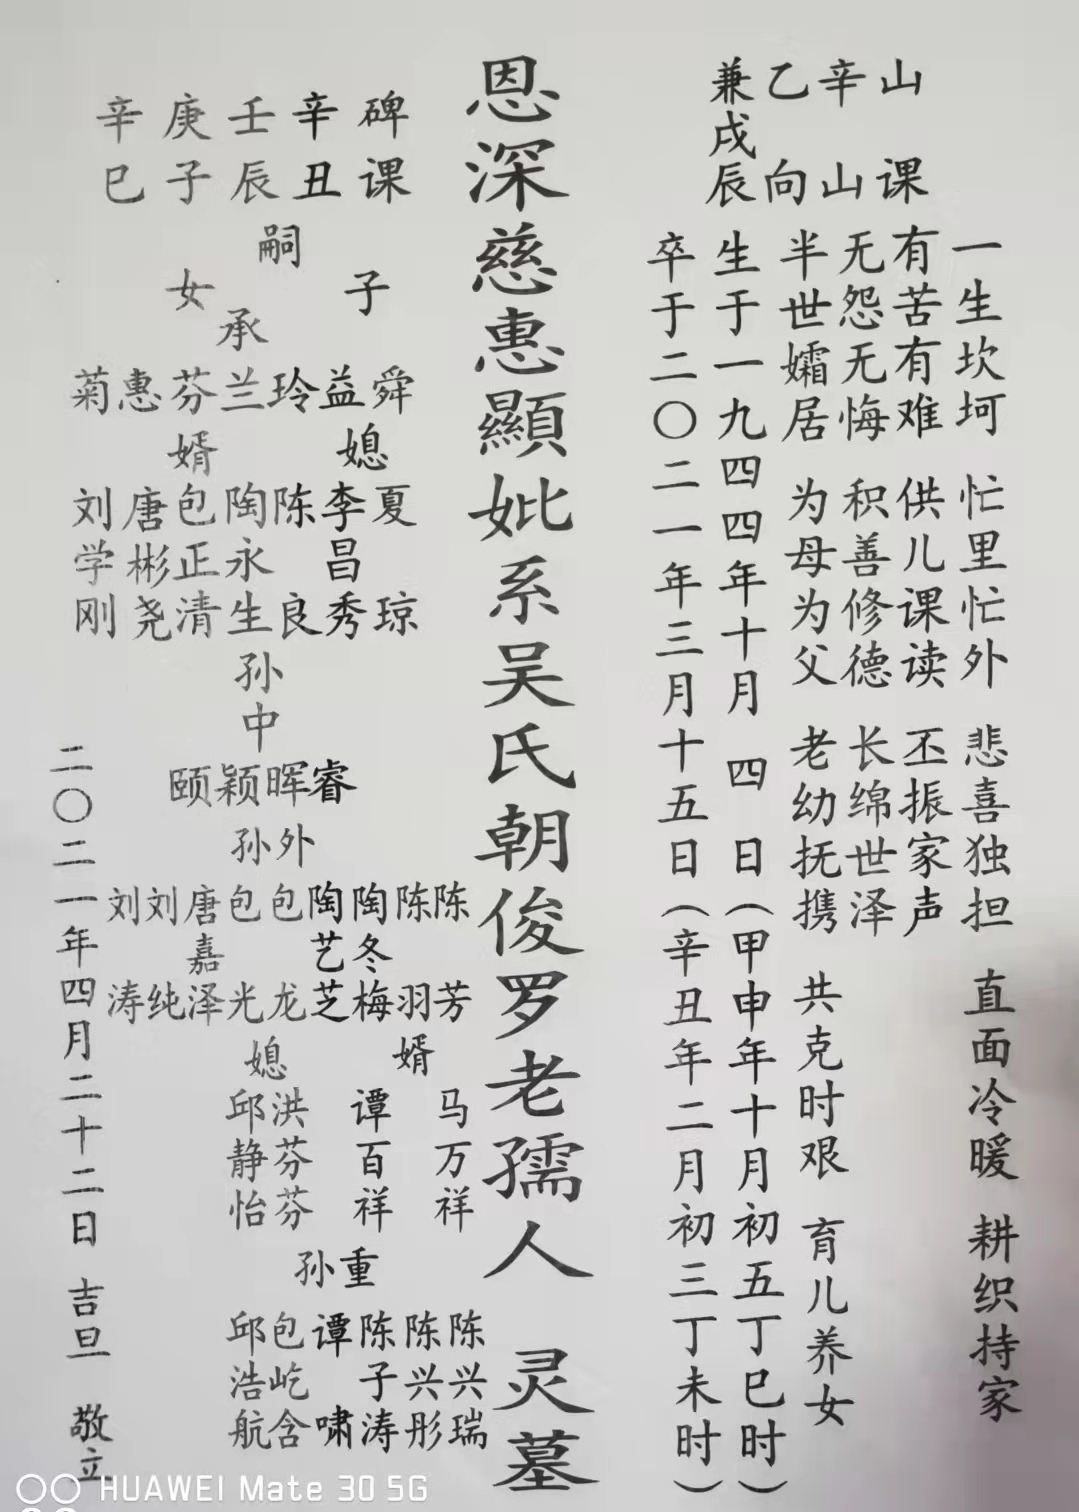 山课
辛山
乙向
兼戌辰
一生坎坷 忙里忙外 悲喜独担 直面冷暖 耕织持家
有苦有难 供儿课读 丕振家声
无怨无悔 积善修德 长绵世泽
半世孀居 为母为父 老幼抚携 共克时艰 育儿养女
生于一九四四年十月四日(甲申年十月初五丁巳时)
卒于二〇二一年三月十五日(辛丑年二月初三丁未时)
恩深慈惠顯妣系吴氏朝俊罗老孺人 灵墓
碑课
辛丑
壬辰
庚子
辛巳
嗣
子
女
承
舜
益
玲
兰
芬
惠
菊
媳
婿
夏琼
李昌秀
陈良
陶永生
包正清
唐彬尧
刘学刚
孙
中
睿
晖
颖
颐
外孙
陈芳
陈羽
陶冬梅
陶艺芝
包龙
包光
唐嘉泽
刘纯
刘涛
婿
媳
马万祥
谭百祥
洪芬芬
邱静怡
重孙
陈兴瑞
陈兴彤
陈子涛
谭啸
包屹含
邱浩航
二〇二一年四月二十二日 吉旦 敬立
HUAWEI Mate 30 5G